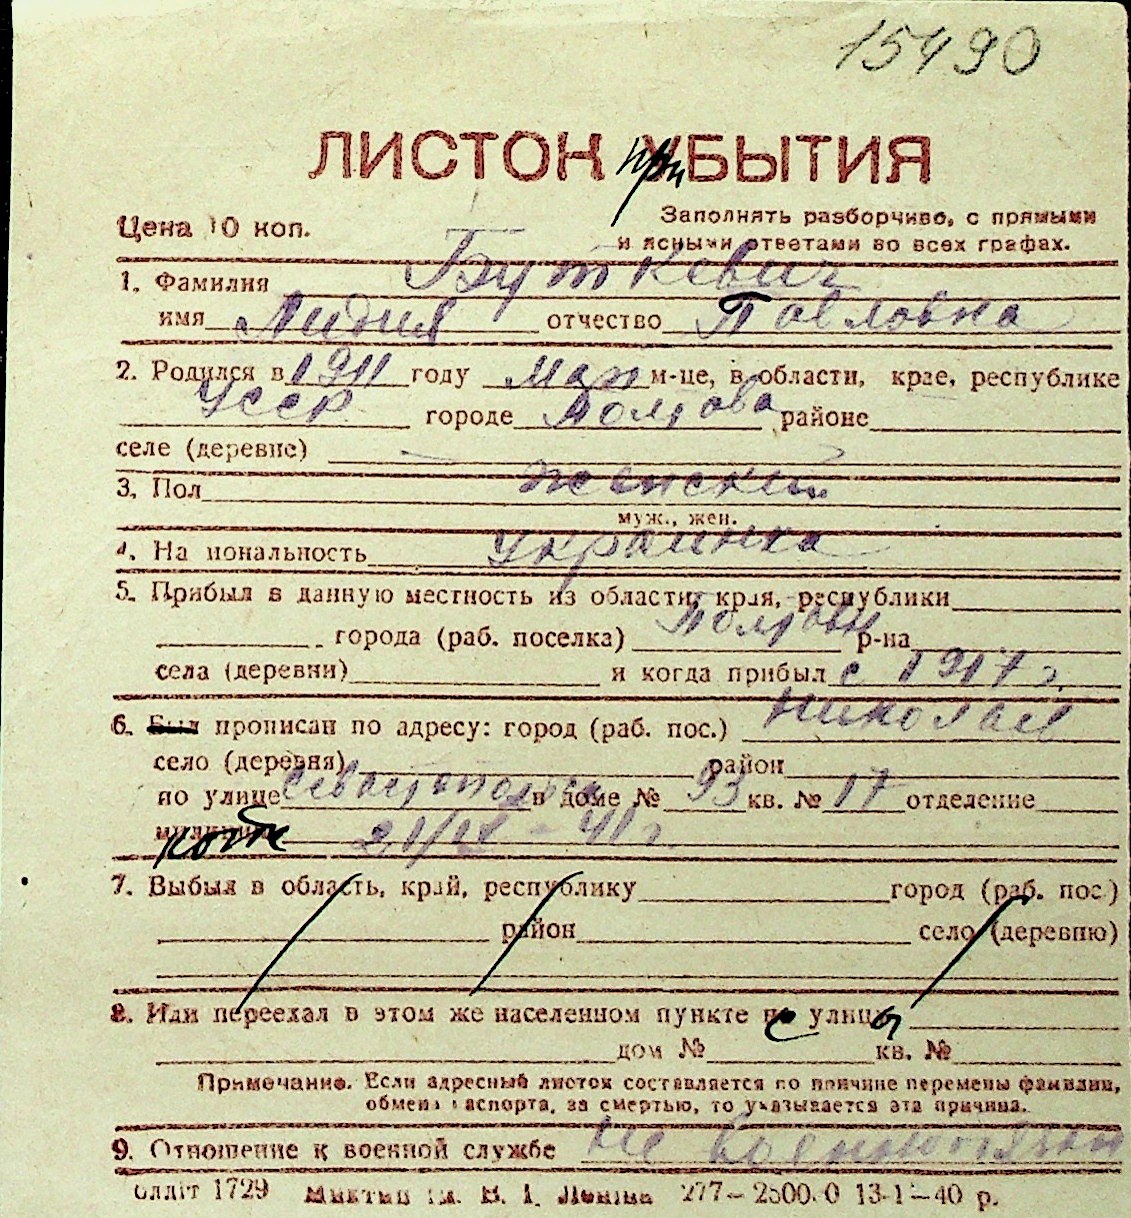 15490
ЛИСТОК УБЫТИЯ
при
Цена 10 коп.
Заполнять разборчиво, с прямыми
и ясными ответами во всех графах.
1. Фамилия Буткевич
имя Лидия отчество Павловна
2. Родился в 1911 году Мая м-це, в области, крае, республике
УССР городе Полтова районе
селе (деревне)
3. Пол женский
муж., жен.
4. Национальность украинка
5. Прибыл в данную местность из области, края, республики
города (раб. поселка) Полтовы р-на
села (деревни) и когда прибыл с 1917 г.
6. Был прописан по адресу: город (раб. пос.) Николаев
село (деревня) район
по улице в доме № 93 кв. № 17 отделение
21/IX - 41 г.
7. Выбыл в область, край, республику город (раб. пос.)
район село (деревню)
8. Или переехал в этом же населенном пункте с улицы
дом № кв. №
Примечание. Если адресный листок составляется по причине перемены фамилии,
обмена паспорта, за смертью, то указывается эта причина.
9. Отношение к военной службе не военнообязан
облліт 1729 277-2500.0 13-1-40 р.